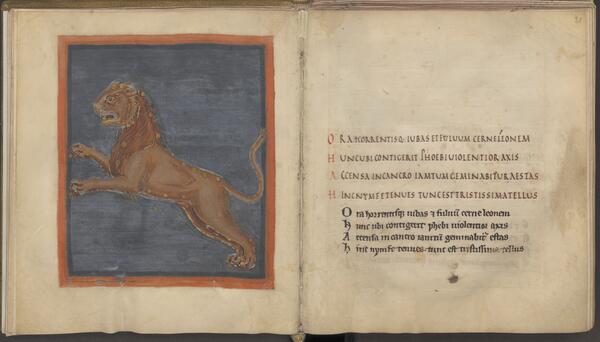 21
ORA HORRENTISQ: IUBAS ET FULUUM CERNE LEONEM
HUNC UBI CONTIGERIT PHOEBI UIOLENTIOR AXIS
ACCENSA IN CANCRO IAM TUM GEMINABITUR AESTAS
HINC NYMFE TENUES TUNC EST TRISTISSIMA TELLUS
Ora horrentisq; iubas & fuluu cerne leonem
hunc ubi contigerit phebi uiolentior axis
Accensa in cancro iamtu geminabit' estas
hinc nymfe tenues tunc est tristissima tellus